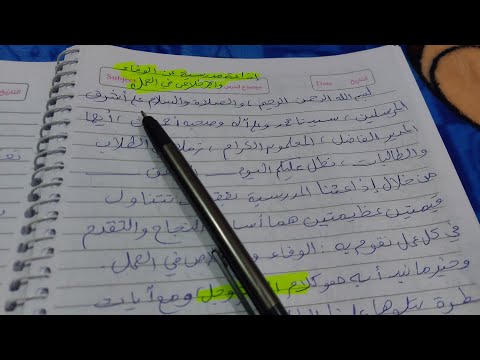 إذاعة مدرسية عن الوفاء
والإخلاص في العمل
Subject
Date
التاريخ
بسم الله الرحمن الرحيم، والصلاة والسلام على أشرف
المرسلين، سيدنا محمد وعلى آله وصحبه أجمعين، أيها
المدير الفاضل، المعلمون الكرام، زملائي الطلاب
والطالبات، نطل عليكم اليوم
من خلال إذاعتنا المدرسية بفقرات تتناول
قيمتين عظيمتين هما أساس النجاح والتقدم
في كل عمل نقوم به: الوفاء والإخلاص في العمل.
وخير ما نبدأ به هو كلام الله عز وجل ومع آيات
عطرة يتلوها علينا